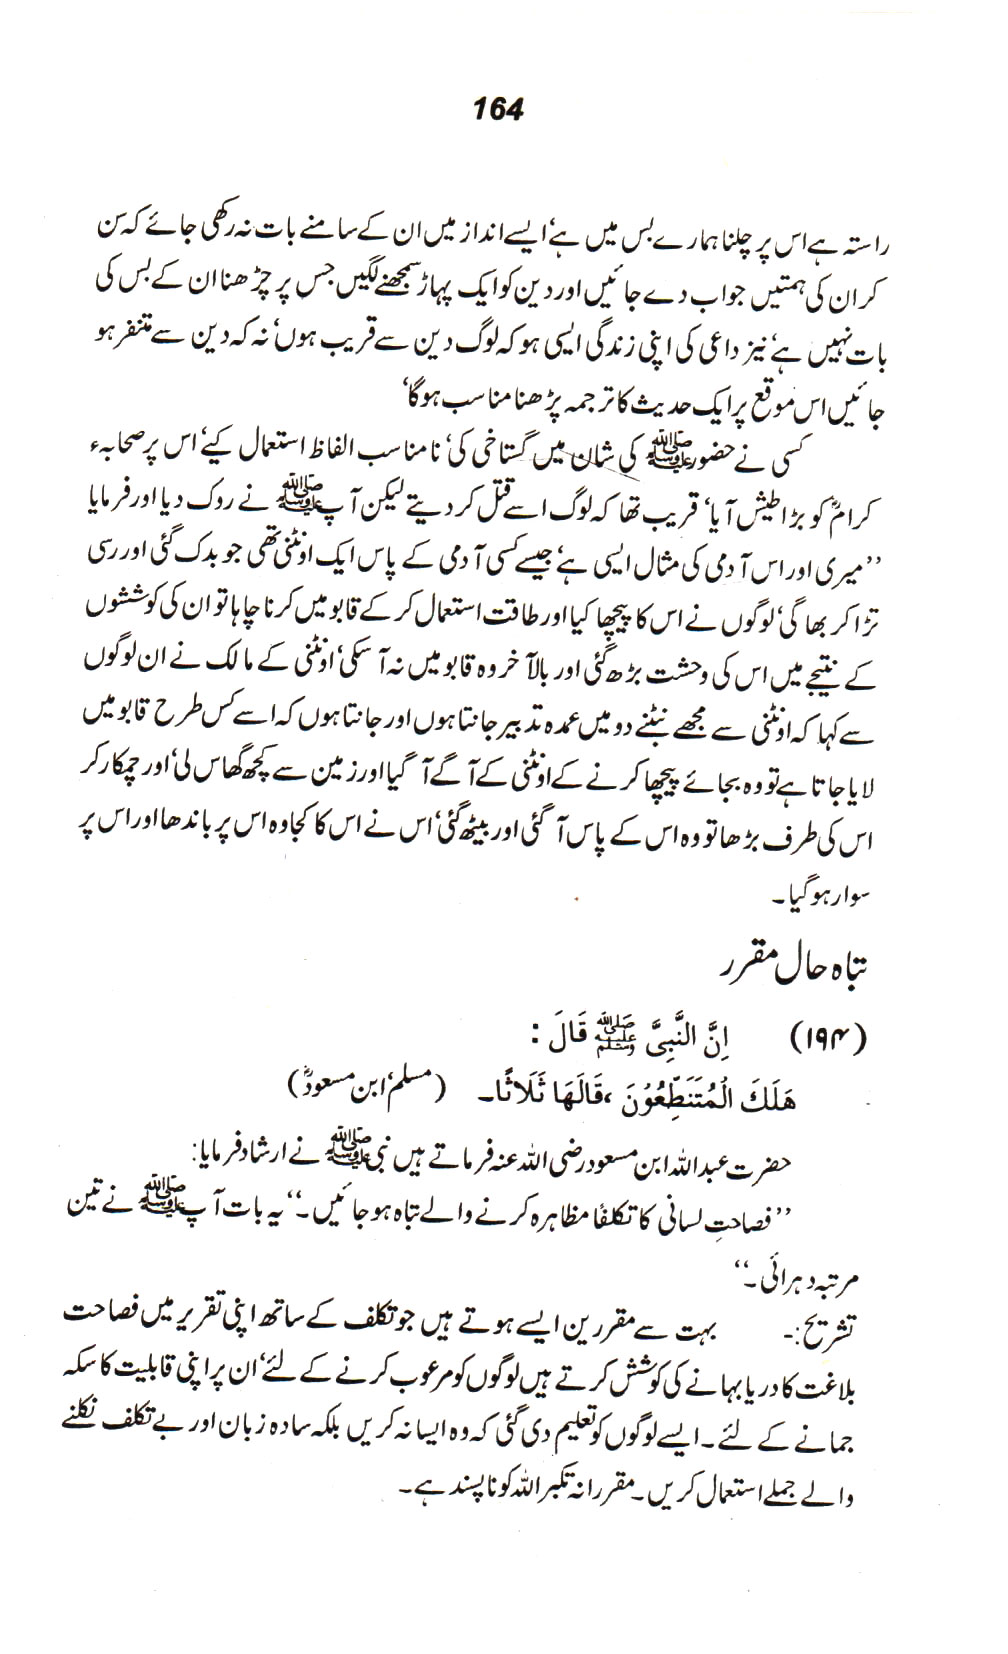 164
راستہ ہے اس پر چلنا ہمارے بس میں ہے‘ ایسے انداز میں ان کے سامنے بات نہ رکھی جائے کہ سن
کر ان کی ہمتیں جواب دے جائیں اور دین کو ایک پہاڑ سمجھنے لگیں جس پر چڑھنا ان کے بس کی
بات نہیں ہے‘ نیز داعی کی اپنی زندگی ایسی ہو کہ لوگ دین سے قریب ہوں‘ نہ کہ دین سے متنفر ہو
جائیں اس موقع پر ایک حدیث کا ترجمہ پڑھنا مناسب ہوگا‘
کسی نے حضور ﷺ کی شان میں گستاخی کی‘ نامناسب الفاظ استعمال کیے‘ اس پر صحابہء
کرامؓ کو بڑا طیش آیا‘ قریب تھا کہ لوگ اسے قتل کر دیتے لیکن آپ ﷺ نے روک دیا اور فرمایا
’’میری اور اس آدمی کی مثال ایسی ہے‘ جیسے کسی آدمی کے پاس ایک اونٹنی تھی جو بدک گئی اور رسی
تڑا کر بھاگی‘ لوگوں نے اس کا پیچھا کیا اور طاقت استعمال کر کے قابو میں کرنا چاہا تو ان کی کوششوں
کے نتیجے میں اس کی وحشت بڑھ گئی اور بالآخر وہ قابو میں نہ آسکی‘ اونٹنی کے مالک نے ان لوگوں
سے کہا کہ اونٹنی سے مجھے نبٹنے دو میں عمدہ تدبیر جانتا ہوں اور جانتا ہوں کہ اسے کس طرح قابو میں
لایا جاتا ہے تو وہ بجائے پیچھا کرنے کے اونٹنی کے آگے آگیا اور زمین سے کچھ گھاس لی‘ اور چمکار کر
اس کی طرف بڑھا تو وہ اس کے پاس آگئی اور بیٹھ گئی‘ اس نے اس کا کجاوہ اس پر باندھا اور اس پر
سوار ہوگیا۔
تباہ حال مقرر
(۱۹۴) اِنَّ النَّبِیَّ ﷺ قَالَ :
ھَلَکَ الْمُتَنَطِّعُوْنَ ،قَالَھَا ثَلَاثًا۔ (مسلم‘ ابن مسعودؓ)
حضرت عبداللہ ابن مسعود رضی اللہ عنہ فرماتے ہیں نبی ﷺ نے ارشاد فرمایا:
’’فصاحتِ لسانی کا تکلفًا مظاہرہ کرنے والے تباہ ہو جائیں۔‘‘ یہ بات آپ ﷺ نے تین
مرتبہ دہرائی۔‘‘
تشریح:- بہت سے مقررین ایسے ہوتے ہیں جو تکلف کے ساتھ اپنی تقریر میں فصاحت
بلاغت کا دریا بہانے کی کوشش کرتے ہیں لوگوں کو مرعوب کرنے کے لئے‘ ان پر اپنی قابلیت کا سکہ
جمانے کے لئے۔ ایسے لوگوں کو تعلیم دی گئی کہ وہ ایسا نہ کریں بلکہ سادہ زبان اور بے تکلف نکلنے
والے جملے استعمال کریں۔ مقررانہ تکبر اللہ کو ناپسند ہے۔